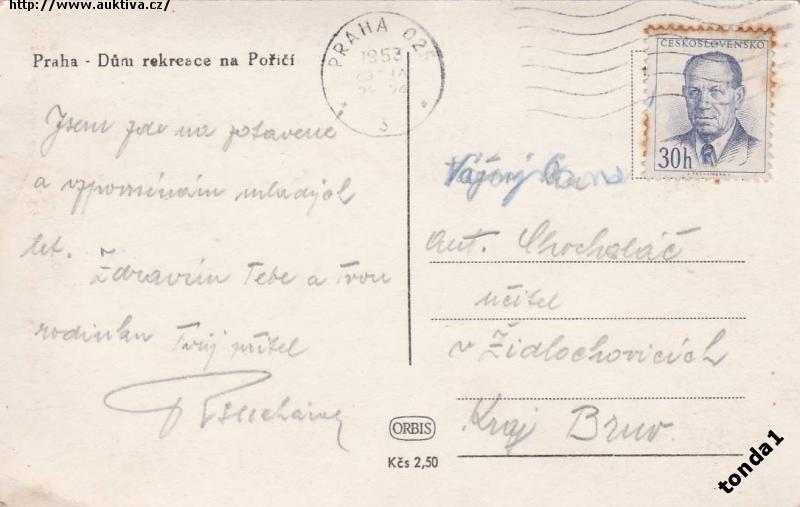 http://www.auktiva.cz/
Praha - Dům rekreace na Poříčí
PRAHA 025
1953
3
ČESKOSLOVENSKO
30h
Jsem zde na zotavené
a vzpomínám mladých
let. Zdravím Tebe a Tvou
rodinku Tvůj přítel
Vážený pan
Ant. Chocholáč
učitel
v Židlochovicích
Kraj Brno.
ORBIS
Kčs 2,50
tonda1